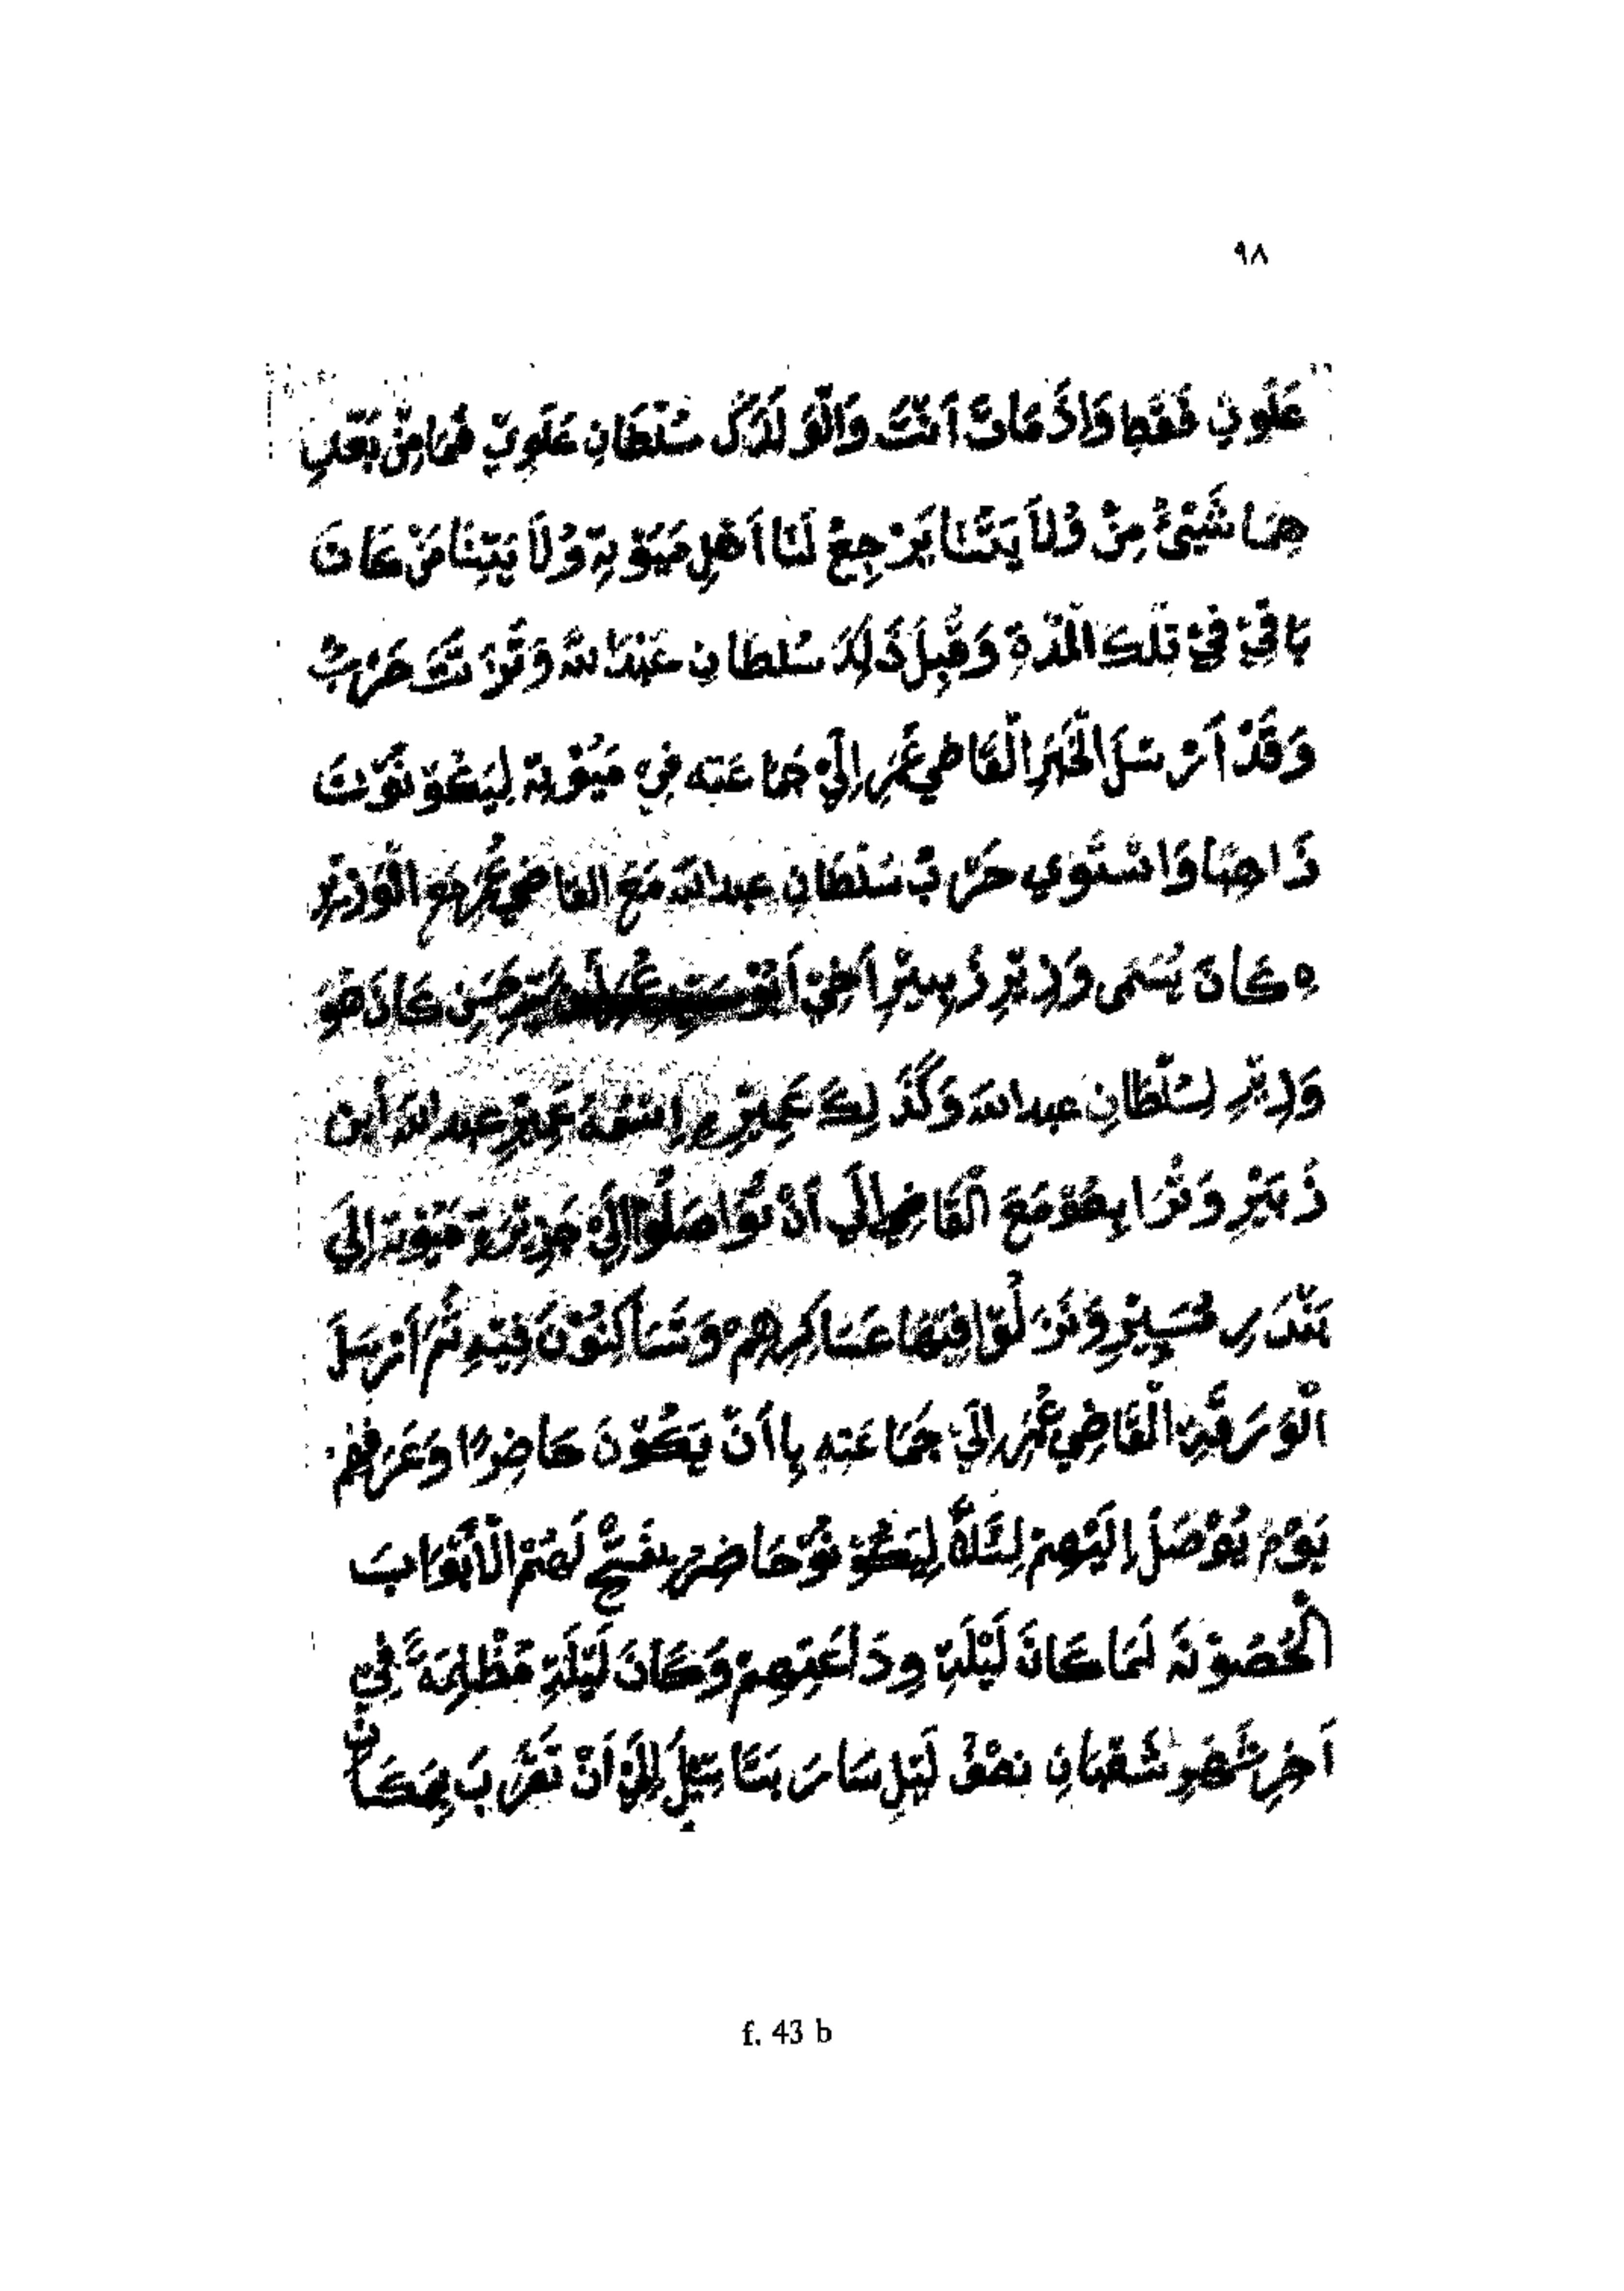 ٩٨
عَلَوِي فَقَطِ وَاذَ مَاتْ اَنْتَ وَالْوَلَدَكَ سُلْطَانِ عَلَوِيّ فَمَا مِنْ بَعْدِ
هِمَا شَيْئُ مِنْ وُلَا يَتْنَا يَرْجِعْ لَنَا اَهْلِ مَيُوْتِهِ وُلَا يَتِنَا مَنْ كَانَ
بَاقِيْ فِيْ تِلْكَ الْمُدَّةِ وَقَبِلَ ذَلِكَ سُلْطَانِ عَبْدَ اللّٰه وَتَرَاتَّبَ حَرْبُ
وَقَدْ اَرْسَلَ الْخَبَرَ الْقَاضِي عُمَرِ اِلَيْ جَمَاعَتِه فِي مَيُوْتِة لِيَكُوْنُوْتَ
ذَاهِبًا وَاسْتَوِي حَرْبْ سُلْطَانِ عبدالله مَعَ القَاضِي عُمَر مَع الْوَزِيْرِ
ه كَانَ يُسَمَى وَزِيْرِ زُبِيْرِ اَخِيْ حَسَنِ كَانَ هُوَ
وَزِيْرِ لِسُلْطَانِ عبدالله وَكَذَلِكَ عَمِيْرِ اِسْمُهُ عَمِيْرِ عبدالله اَبن
زُبَيْرِ وَتْرَا بِطُوْ مَعَ الْقَاضِ اِلَي اَنْ تُوَاصَلُوْا اِلَيْ جَزِيْرَة مَيُوْتَة اِلَيَ
بَنْدَرِ مُسَپِيْرِ وَنَزَلُوْا فِيْهَا عَسَاكِرِهِمْ وَتَسَاكِنُوْنَ فِيْهِ ثُمَّ اَرْسَلَ
الْوَرَقَة الْقَاضِي عُمَر اِلَيْ جَمَاعَتِهِ بِااَنْ يَكُوْنَ حَاضِرًا وَعَرَفْهُمْ
يَوْمُ يُوْصَلُ اِلَيْهِمْ لِئَلَةً لِيَكُوْ نُوْحَاضِرْ بِفَتْحْ لَهُمْ الْاَبْوَابَ
الْحُصُوْنَه لَمَا كَانَ لَيْلَة وِدَاعَتِهِمْ وَكَانَ لَيْلَةِ مُظْلِمَةً فِي
اَخِرِ شَهْرِ شَعْبَانِ نصْفْ لَيْلِ سَارَ بَنَا سَيْلَ اِلَيْ اَنْ تَقَرَّبَ بِمَكَانْ
f. 43 b